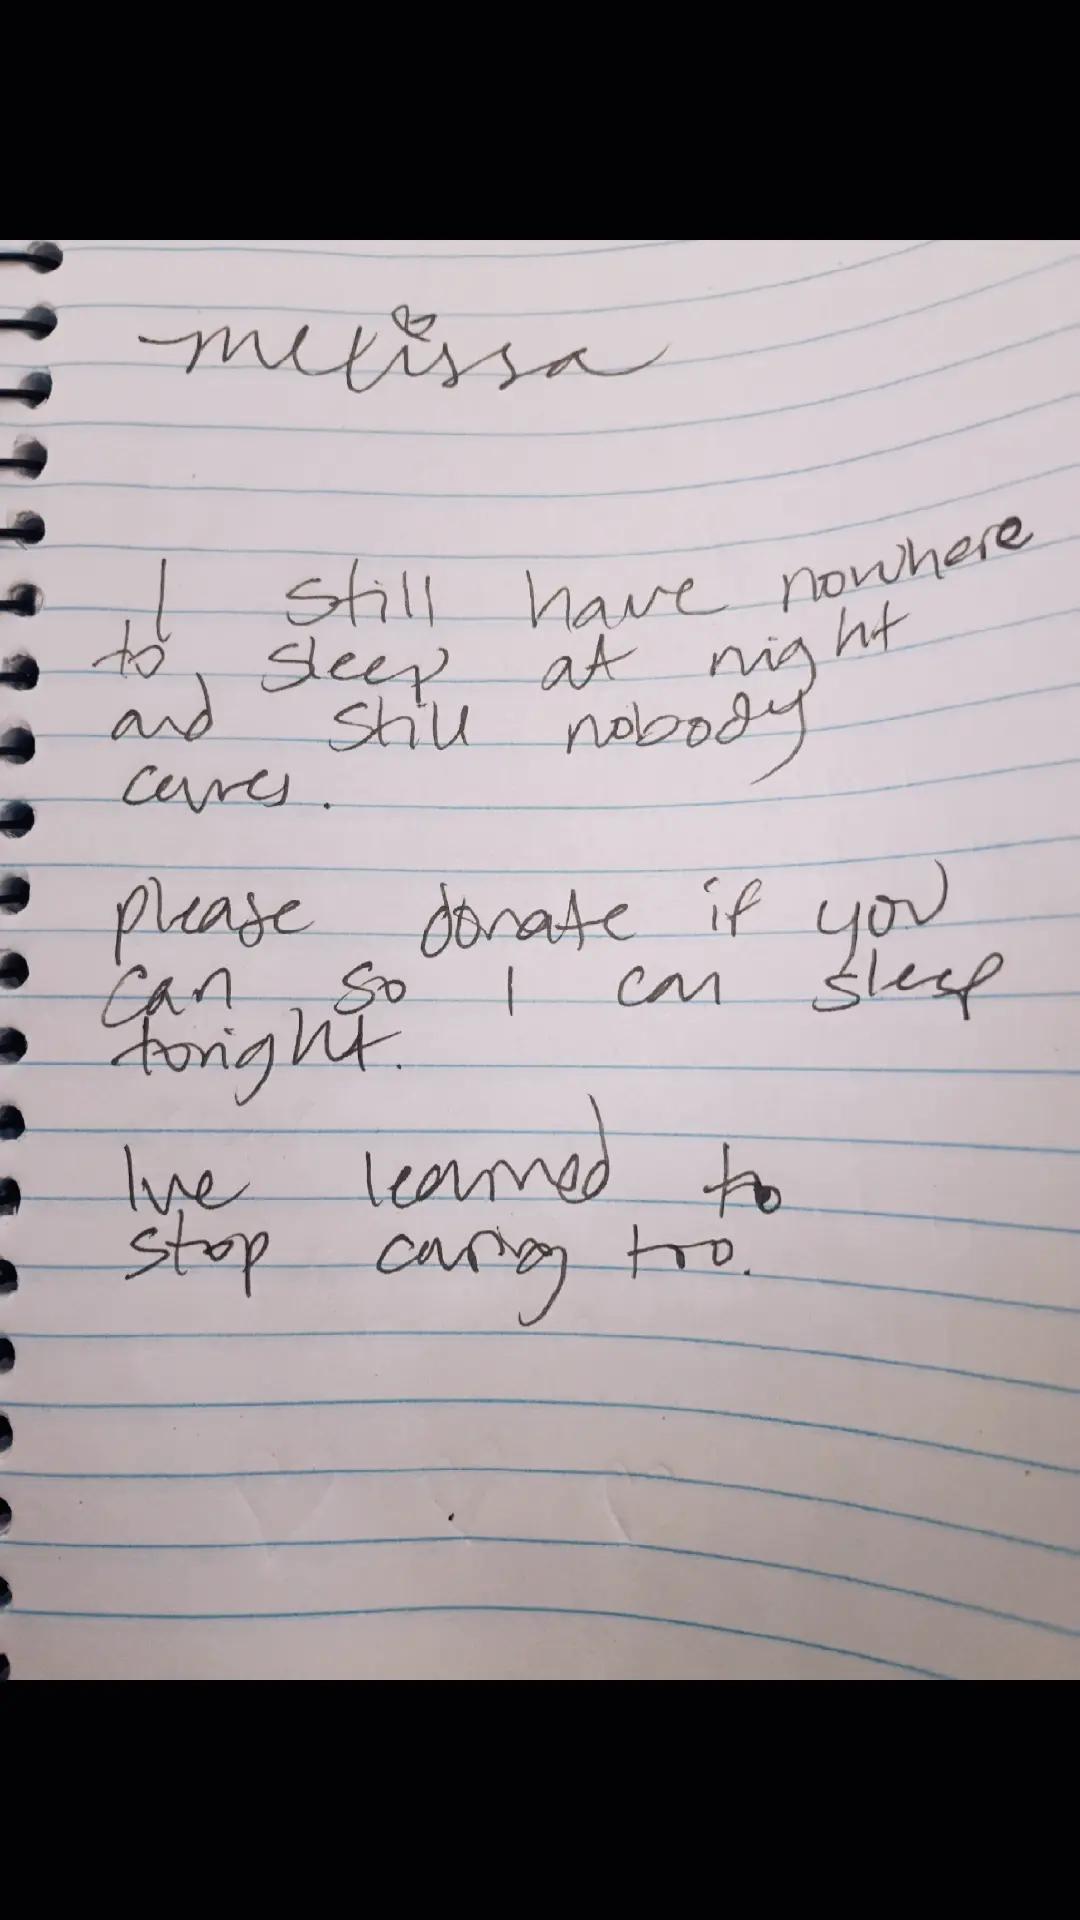 melissa
I still have nowhere
to sleep at night
and still nobody
cares.
please donate if you
can so I can sleep
tonight.
Ive learned to
stop caring too.